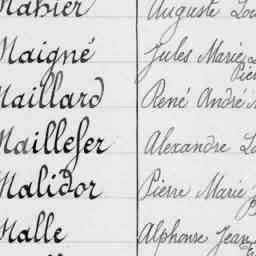 Mahier Auguste Lou
Maigné Jules Marie L
Pier
Maillard René André
Maillefer Alexandre Lo
Malidor Pierre Marie
Malle Alphonse Jean